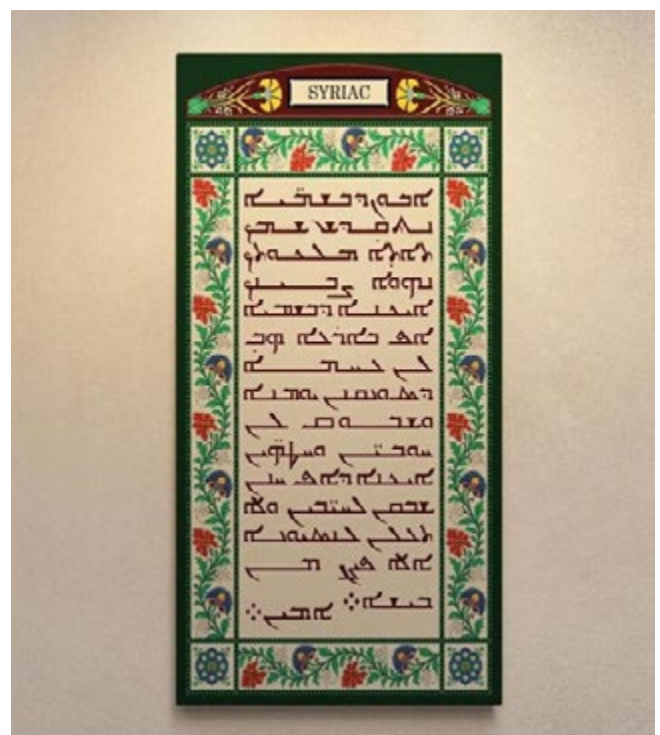 SYRIAC
ܐܒܘܢ ܕܒܫܡ̈ܝܐ
ܢܬܩܕܫ ܫܡܟ
ܬܐܬܐ ܡܠܟܘܬܟ
ܢܗܘܐ ܨܒܝܢܟ
ܐܝܟܢܐ ܕܒܫܡܝܐ
ܐܦ ܒܐܪܥܐ ܗܒ
ܠܢ ܠܚܡܐ
ܕܣܘܢܩܢܢ ܝܘܡܢܐ
ܘܫܒܘܩ ܠܢ
ܚܘܒܝ̈ܢ ܘܚܛܗ̈ܝܢ
ܐܝܟܢܐ ܕܐܦ ܚܢܢ
ܫܒܩܢ ܠܚܝ̈ܒܝܢ ܘܠܐ
ܬܥܠܢ ܠܢܣܝܘܢܐ
ܐܠܐ ܦܨܢ ܡܢ
ܒܝܫܐ܀ ܐܡܝܢ܀